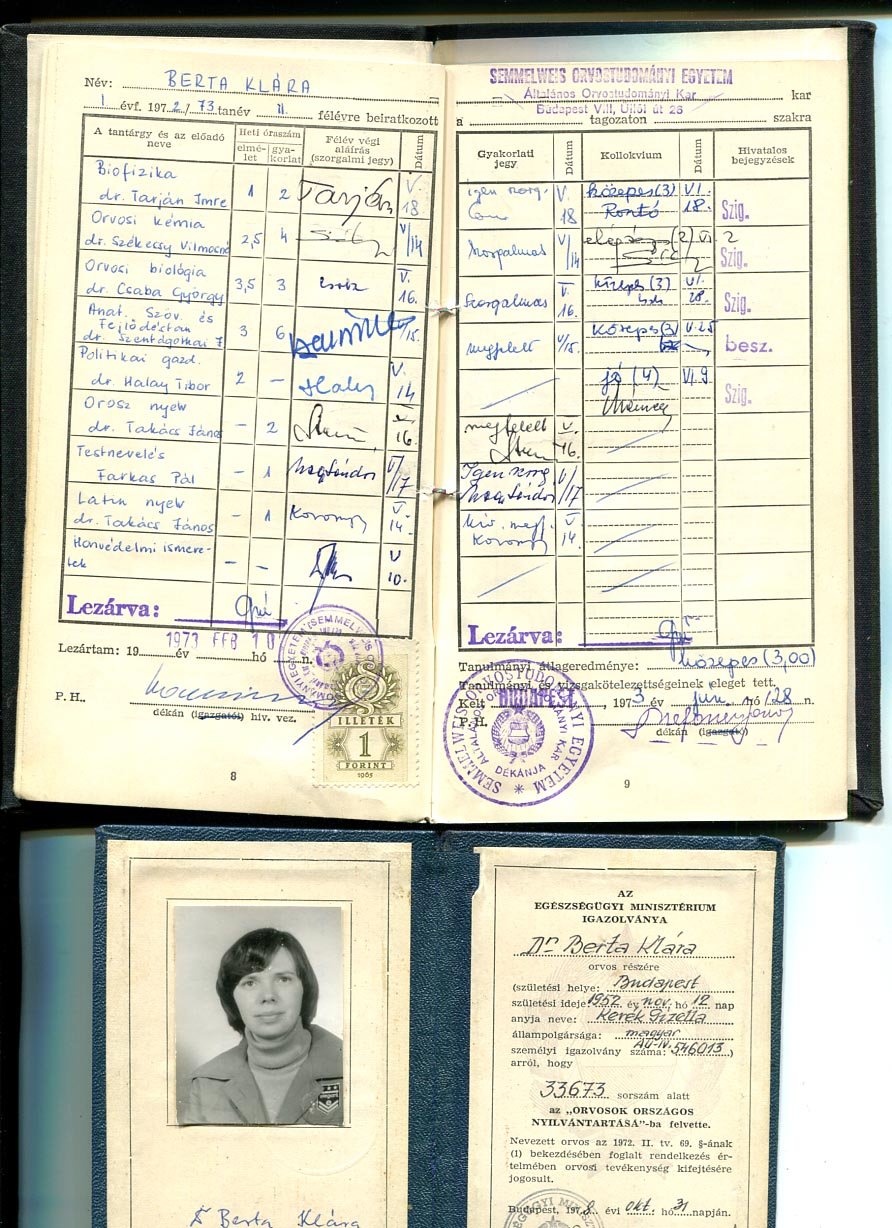 Név: BERTA KLÁRA
I. évf. 1972/73 tanév II. félévre beiratkozott
A tantárgy és az előadó neve
Heti óraszám
elmélet
gyakorlat
Félév végi aláírás (szorgalmi jegy)
Dátum
Biofizika
dr. Tarján Imre 1 2 Tarján V. 18
Orvosi kémia
dr. Székessy Vilmosné 2,5 4 V/14
Orvosi biológia
dr. Csaba György 3,5 3 V. 16.
Anat. Szöv. és
Fejlődéstan
dr. Szentágothai J 3 6 /15.
Politikai gazd.
dr. Halay Tibor 2 — Halay V. 14
Orosz nyelv
dr. Takács János — 2 16.
Testnevelés
Farkas Pál — 1 V/17
Latin nyelv
dr. Takács János — 1 V. 14.
Honvédelmi ismere-
tek — — V 10.
Lezárva:
1973 FEB 10
Lezártam: 19 év hó n.
P. H.
dékán (igazgató) hiv. vez.
ILLETÉK
1
FORINT
1965
8
SEMMELWEIS ORVOSTUDOMÁNYI EGYETEM
Általános Orvostudományi Kar kar
Budapest VIII, Üllői út 26
a tagozaton szakra
Gyakorlati jegy
Dátum
Kollokvium
Dátum
Hivatalos bejegyzések
igen szorg. V. 18 közepes (3) VI. 18. Szig.
Rontó
Szorgalmas V/14 elégséges (2) VI 2 Szig.
Szorgalmas V. 16. közepes (3) VI. 28. Szig.
megfelelt V/15. közepes (3) V. 25 besz.
jó (4) VI. 9. Szig.
megfelelt V. 16.
Igen szorg V/17
kiv. megf. V 14.
Lezárva:
Tanulmányi átlageredménye: közepes (3,00)
Tanulmányi és vizsgakötelezettségeinek eleget tett.
Kelt BUDAPEST, 1973 év jún. hó 28 n.
P. H.
dékán (igazgató)
SEMMELWEIS ORVOSTUDOMÁNYI EGYETEM
ÁLTALÁNOS ORVOSTUDOMÁNYI KAR
DÉKÁNJA
9
Dr Berta Klára
AZ
EGÉSZSÉGÜGYI MINISZTÉRIUM
IGAZOLVÁNYA
Dr Berta Klára
orvos részére
(születési helye: Budapest
születési ideje: 1952 év nov. hó 12 nap
anyja neve: Kerék Gizella
állampolgársága: magyar
személyi igazolvány száma: AU-IV. 546013)
arról, hogy
33673 sorszám alatt
az „ORVOSOK ORSZÁGOS
NYILVÁNTARTÁSÁ"-ba felvette.
Nevezett orvos az 1972. II. tv. 69. §-ának
(1) bekezdésében foglalt rendelkezés ér-
telmében orvosi tevékenység kifejtésére
jogosult.
Budapest, 1978. évi okt. hó 31 napján.